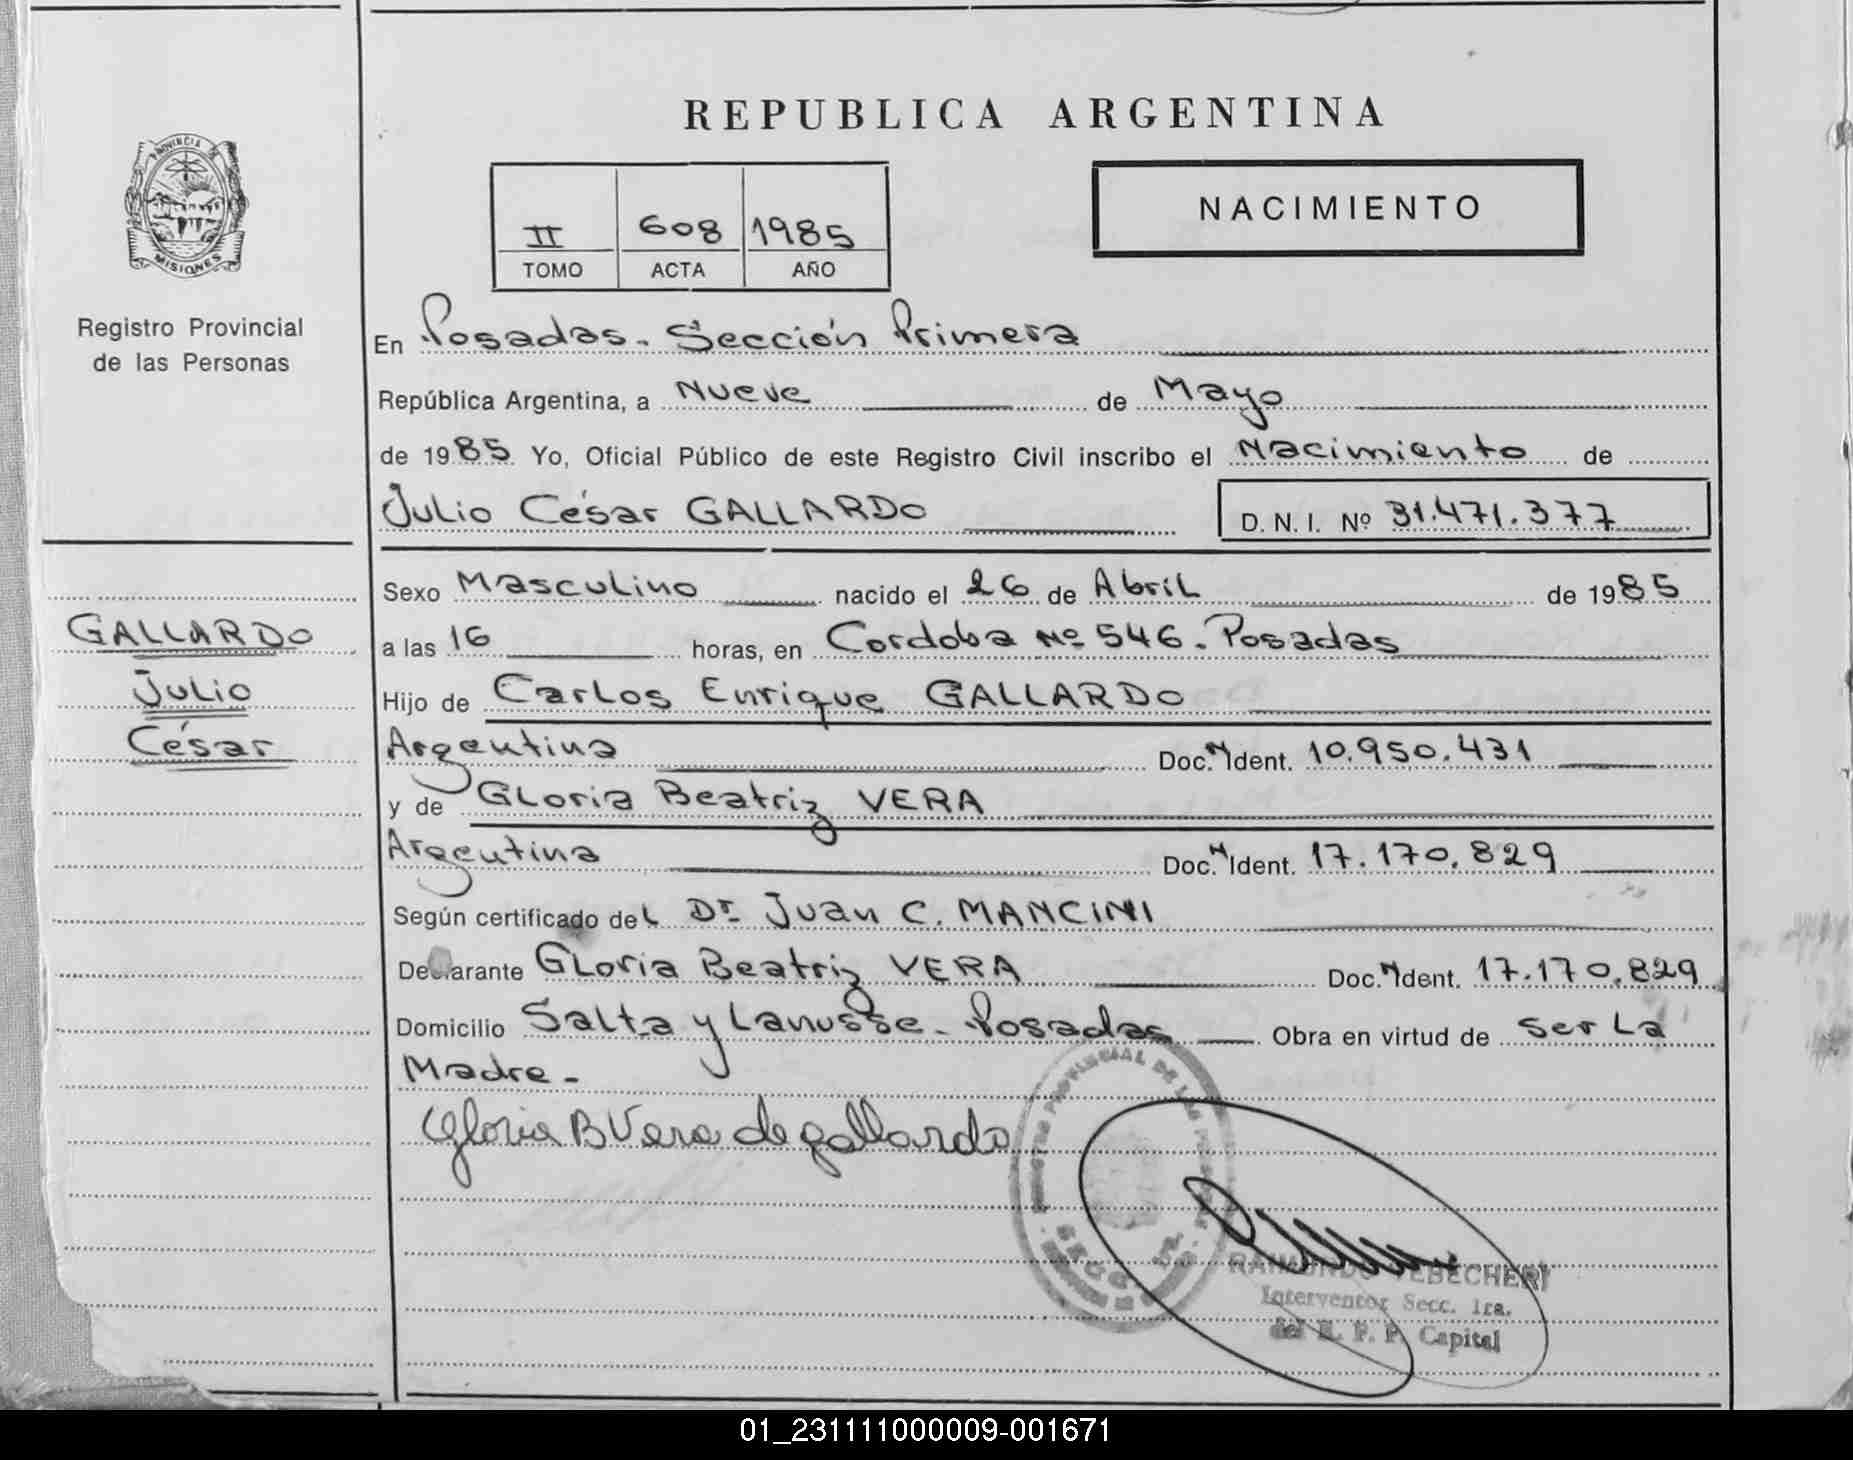 REPUBLICA ARGENTINA
PROVINCIA DE
MISIONES
Registro Provincial
de las Personas
II 608 1985
TOMO ACTA AÑO
NACIMIENTO
En Posadas. Sección Primera
República Argentina, a Nueve de Mayo
de 1985 Yo, Oficial Público de este Registro Civil inscribo el Nacimiento de
Julio César GALLARDO D. N. I. Nº 31.471.377
GALLARDO
Julio
César
Sexo Masculino nacido el 26 de Abril de 1985
a las 16 horas, en Cordoba Nº 546. Posadas
Hijo de Carlos Enrique GALLARDO
Argentina Doc. N Ident. 10.950.431
y de Gloria Beatriz VERA
Argentina Doc. N Ident. 17.170.829
Según certificado del Dr. Juan C. MANCINI
Declarante Gloria Beatriz VERA Doc. N Ident. 17.170.829
Domicilio Salta y Lanusse. Posadas Obra en virtud de Ser La
Madre.
Gloria B Vera de gallardo
REGISTRO PROVINCIAL DE LAS PERSONAS
RAIMUNDO YEBECHERI
Interventor Secc. 1ra.
del R. P. P. Capital
01_231111000009-001671